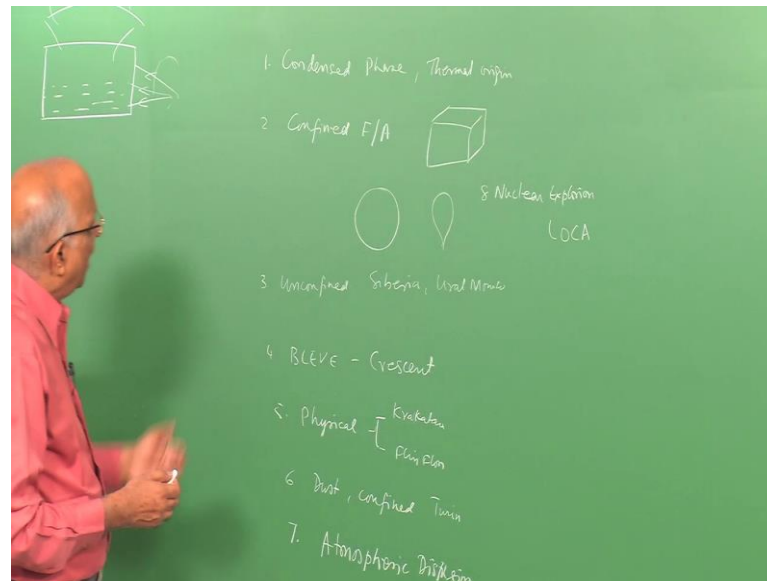 1. Condensed Phase, Thermal origin
2 Confined F/A
8 Nuclear Explosion
LOCA
3 Unconfined Siberia, Ural Mount
4 BLEVE - Crescent
5. Physical - Krakatau
Flin Flon
6 Dust, confined Turin
7. Atmospheric Dispersion